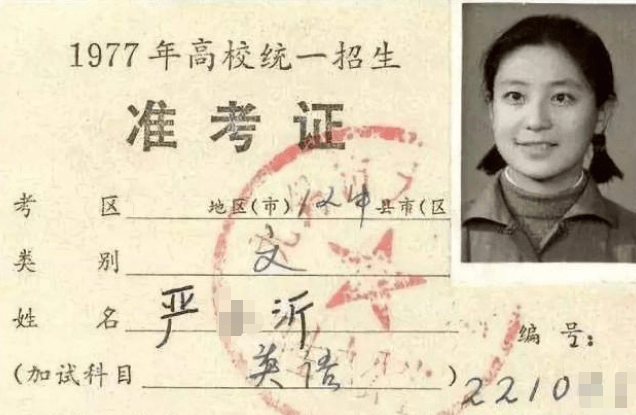 1977年高校统一招生
准考证
考区 地区(市) 县市(区
类别 文
姓名 严 沂
编号:
(加试科目 英语 ) 2210